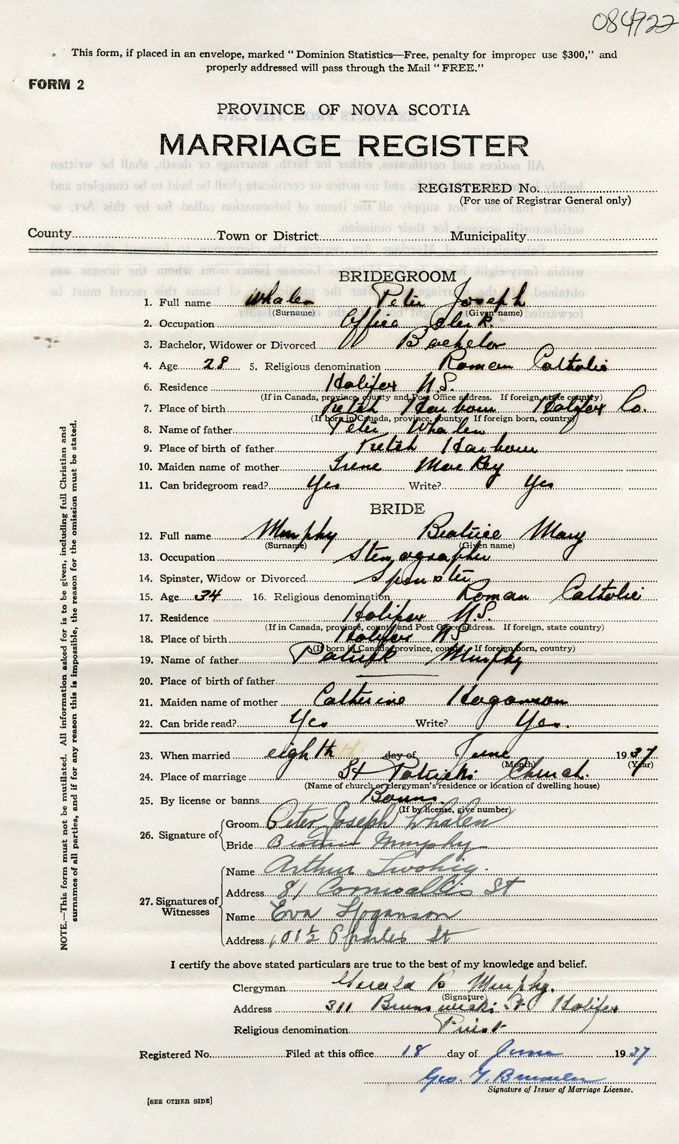 084922
This form, if placed in an envelope, marked "Dominion Statistics—Free, penalty for improper use $300," and
properly addressed will pass through the Mail "FREE."
FORM 2
PROVINCE OF NOVA SCOTIA
MARRIAGE REGISTER
REGISTERED No.
(For use of Registrar General only)
County Town or District Municipality
BRIDEGROOM
1. Full name Whalen Peter Joseph
(Surname) (Given name)
2. Occupation Office Clerk.
3. Bachelor, Widower or Divorced Bachelor
4. Age 28 5. Religious denomination Roman Catholic
6. Residence Halifax N.S.
(If in Canada, province, county and Post Office address. If foreign, state country)
7. Place of birth Ketch Harbour Halifax Co.
(If born in Canada, province, county If foreign born, country)
8. Name of father Peter Whalen
9. Place of birth of father Ketch Harbour
10. Maiden name of mother Irene
11. Can bridegroom read? Yes Write? Yes
BRIDE
12. Full name Murphy Beatrice Mary
(Surname) (Given name)
13. Occupation Stenographer
14. Spinster, Widow or Divorced Spinster
15. Age 34 16. Religious denomination Roman Catholic
17. Residence Halifax N.S.
(If in Canada, province, county and Post Office address. If foreign, state country)
18. Place of birth Halifax N.S.
(If born in Canada province, county, If foreign born, country)
19. Name of father Patrick Murphy
20. Place of birth of father
21. Maiden name of mother Catherine Hoganson
22. Can bride read? Yes Write? Yes.
23. When married eighth day of June 1937
(Month) (Year)
24. Place of marriage St Patricks Church.
(Name of church or clergyman's residence or location of dwelling house)
25. By license or banns Banns
(If by license, give number)
26. Signature of Groom Peter Joseph Whalen
Bride Beatrice Murphy
27. Signatures of Witnesses Name Arthur
Address 81 Cornwallis St
Name Eva Hoganson
Address 101½ St
I certify the above stated particulars are true to the best of my knowledge and belief.
Clergyman Gerald B Murphy.
(Signature)
Address 311 Brunswick St Halifax
Religious denomination Priest
Registered No. Filed at this office 18 day of June 1937
Geo. 
Signature of Issuer of Marriage License.
[SEE OTHER SIDE]
NOTE.—This form must not be mutilated. All information asked for is to be given, including full Christian and
surnames of all parties, and if for any reason this is impossible, the reason for the omission must be stated.